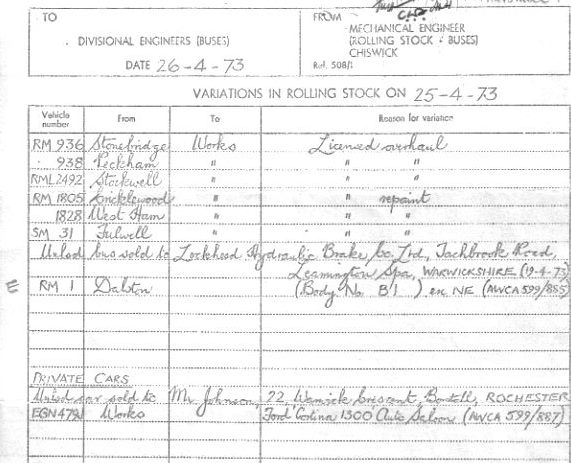 TO
DIVISIONAL ENGINEERS (BUSES)
DATE 26-4-73
FROM
MECHANICAL ENGINEER
(ROLLING STOCK - BUSES)
CHISWICK
Ref. 508/1
VARIATIONS IN ROLLING STOCK ON 25-4-73
Vehicle number From To Reason for variation
RM 936 Stonebridge Works Licensed overhaul
" 938 Peckham " " "
RML2492 Stockwell " " "
RM 1805 Cricklewood " " repaint
1828 West Ham " " "
SM 31 Fulwell " " "
Unlsd bus sold to Lockheed Hydraulic Brake Co. Ltd, Tachbrook Road,
Leamington Spa, WARWICKSHIRE (19-4-73)
RM 1 Dalston (Body No B1 ) en NE (AWCA 599/885)
PRIVATE CARS
Unlsd car sold to Mr Johnson, 22, Warwick Crescent, Borstll, ROCHESTER
Works Ford Cortina 1300 Auto Saloon (AWCA 599/887)